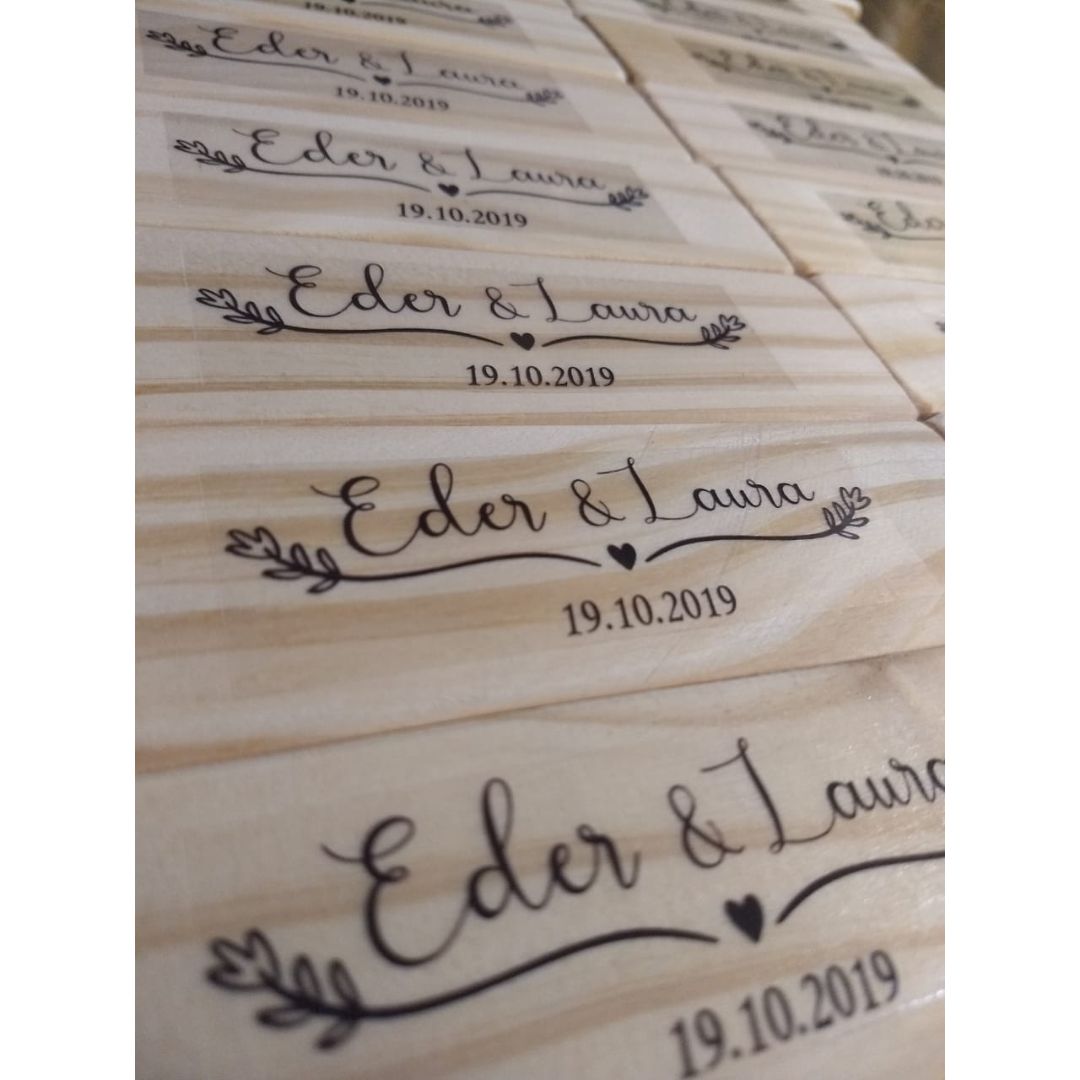 19.10.2019
Eder & Laura
19.10.2019
Eder & Laura
19.10.2019
Eder & Laura
19.10.2019
Eder & Laura
19.10.2019
Eder & Laura
19.10.2019